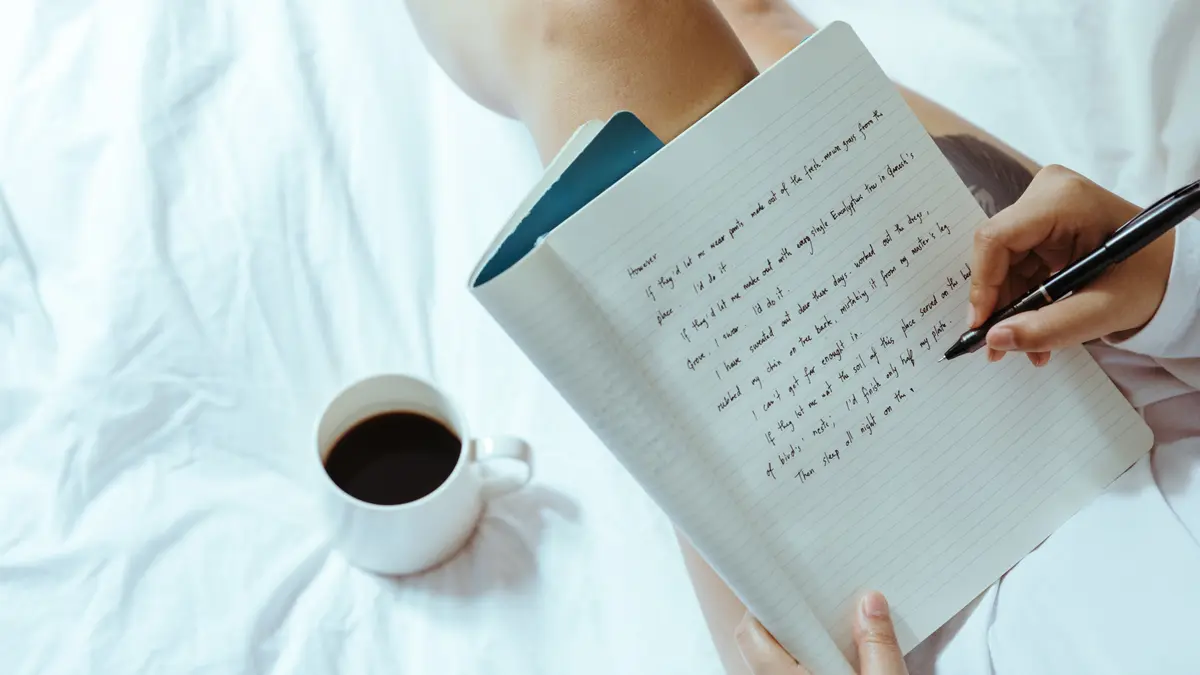 However
If they'd let me wear pants made out of the fresh-manure grass from the
place. I'd do it.
If they'd let me make out with every single Eucalyptus tree in Ganesh's
Grove, I swear. I'd do it.
I have sweated out dew these days. worked out the dregs,
rubbed my chin on tree bark, mistaking it from my master's leg
I can't get far enough in.
If they let me eat the soil of this place served on the bed
of birds' nests; I'd finish only half my plate.
Then sleep all night on the